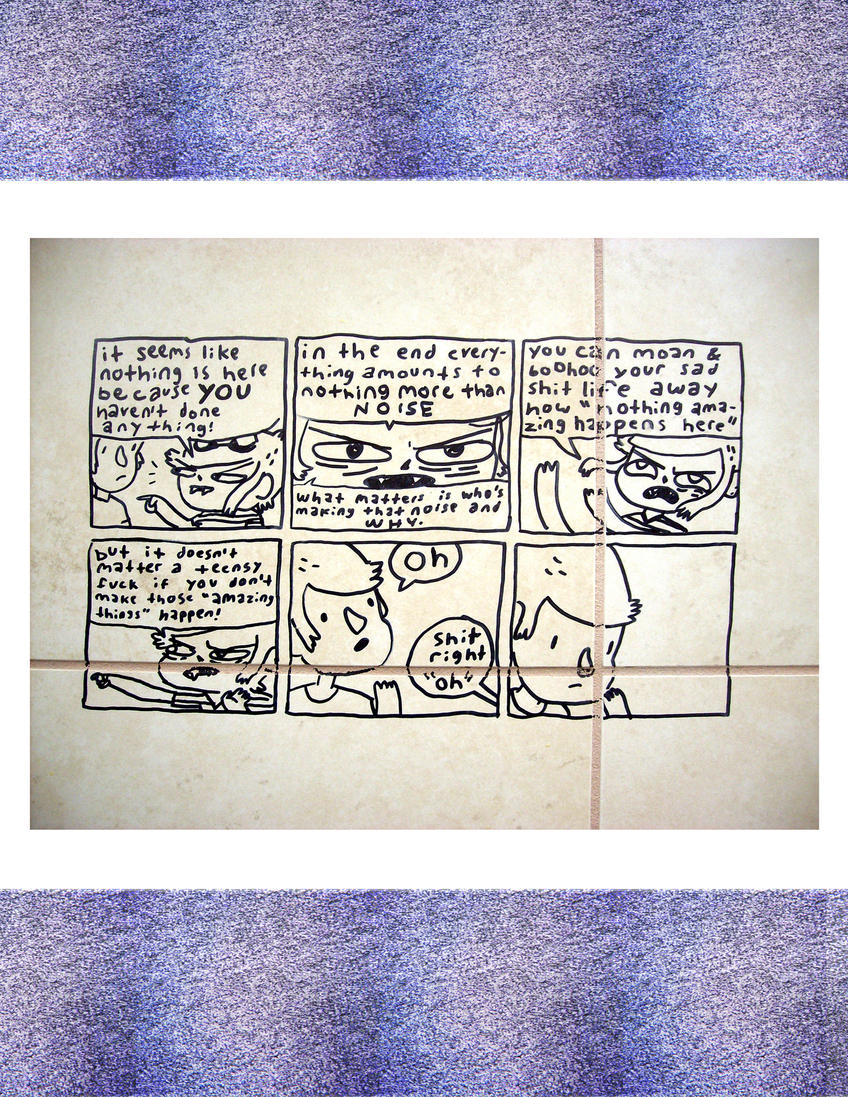 it seems like
nothing is here
because YOU
haven't done
anything!
in the end every-
thing amounts to
nothing more than
NOISE
what matters is who's
making that noise and
WHY.
you can moan &
boohoo your sad
shit life away
how "nothing ama-
zing happens here"
but it doesn't
matter a teensy
fuck if you don't
make those "amazing
things" happen!
oh
shit
right
"oh"